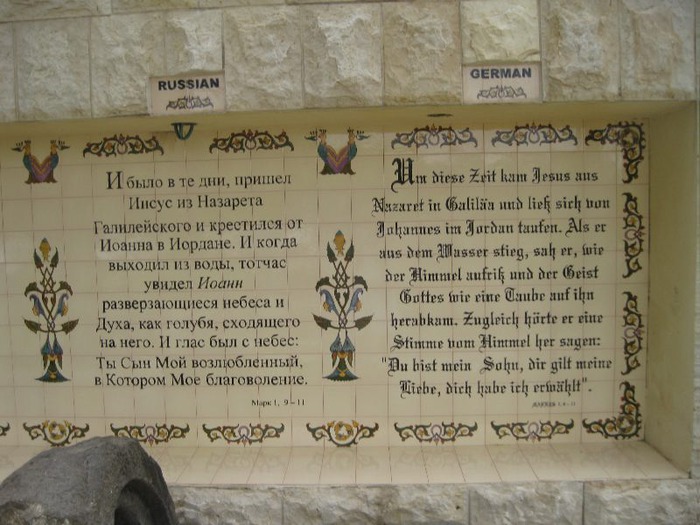 RUSSIAN
И было в те дни, пришел
Иисус из Назарета
Галилейского и крестился от
Иоанна в Иордане. И когда
выходил из воды, тотчас
увидел Иоанн
разверзающиеся небеса и
Духа, как голубя, сходящего
на него. И глас был с небес:
Ты Сын Мой возлюбленный,
в Котором Мое благоволение.
Марк 1, 9–11
GERMAN
Um diese Zeit kam Jesus aus
Nazaret in Galiläa und ließ sich von
Johannes im Jordan taufen. Als er
aus dem Wasser stieg, sah er, wie
der Himmel aufriß und der Geist
Gottes wie eine Taube auf ihn
herabkam. Zugleich hörte er eine
Stimme vom Himmel her sagen:
"Du bist mein Sohn, dir gilt meine
Liebe, dich habe ich erwählt".